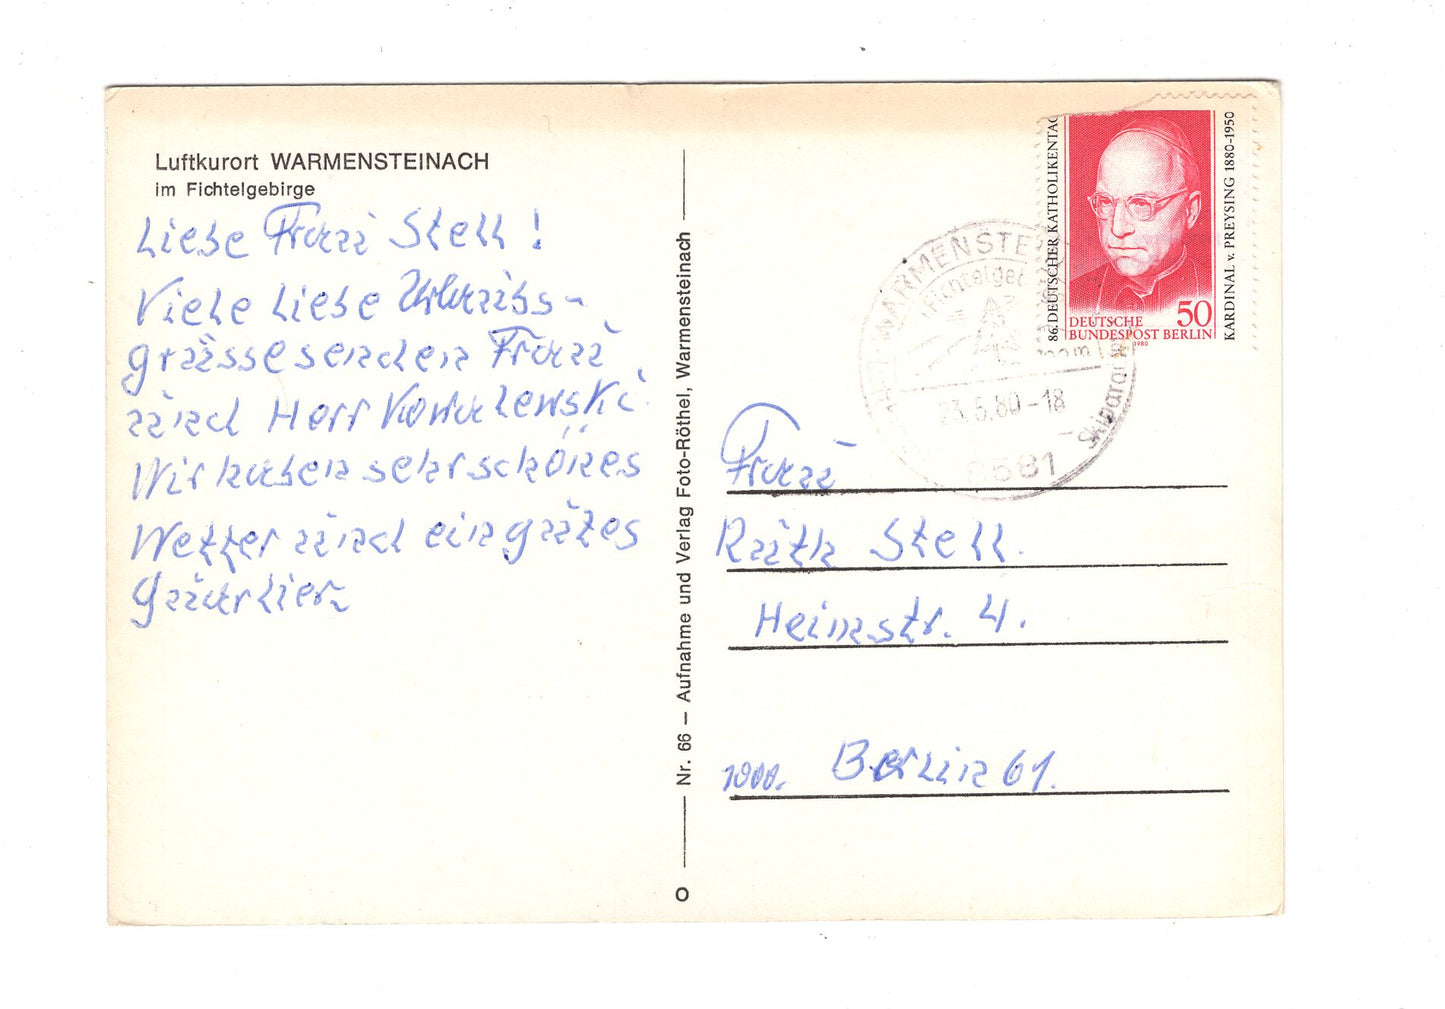 Luftkurort WARMENSTEINACH
im Fichtelgebirge
Liebe Frau Stell!
Viele liebe Urlaubs-
grüsse senden Frau
und Herr Kowalewski.
Wir haben sehr schönes
Wetter und ein gutes
Quartier.
Nr. 66 – Aufnahme und Verlag Foto-Röthel, Warmensteinach
86. DEUTSCHER KATHOLIKENTAG
KARDINAL v. PREYSING 1880-1950
50
DEUTSCHE
BUNDESPOST BERLIN
1980
WARMENSTEI
Fichtelgeb
23.5.80-18
Skiparad
8581
Frau
Ruth Stell.
Heimstr. 4.
1000. Berlin 61.